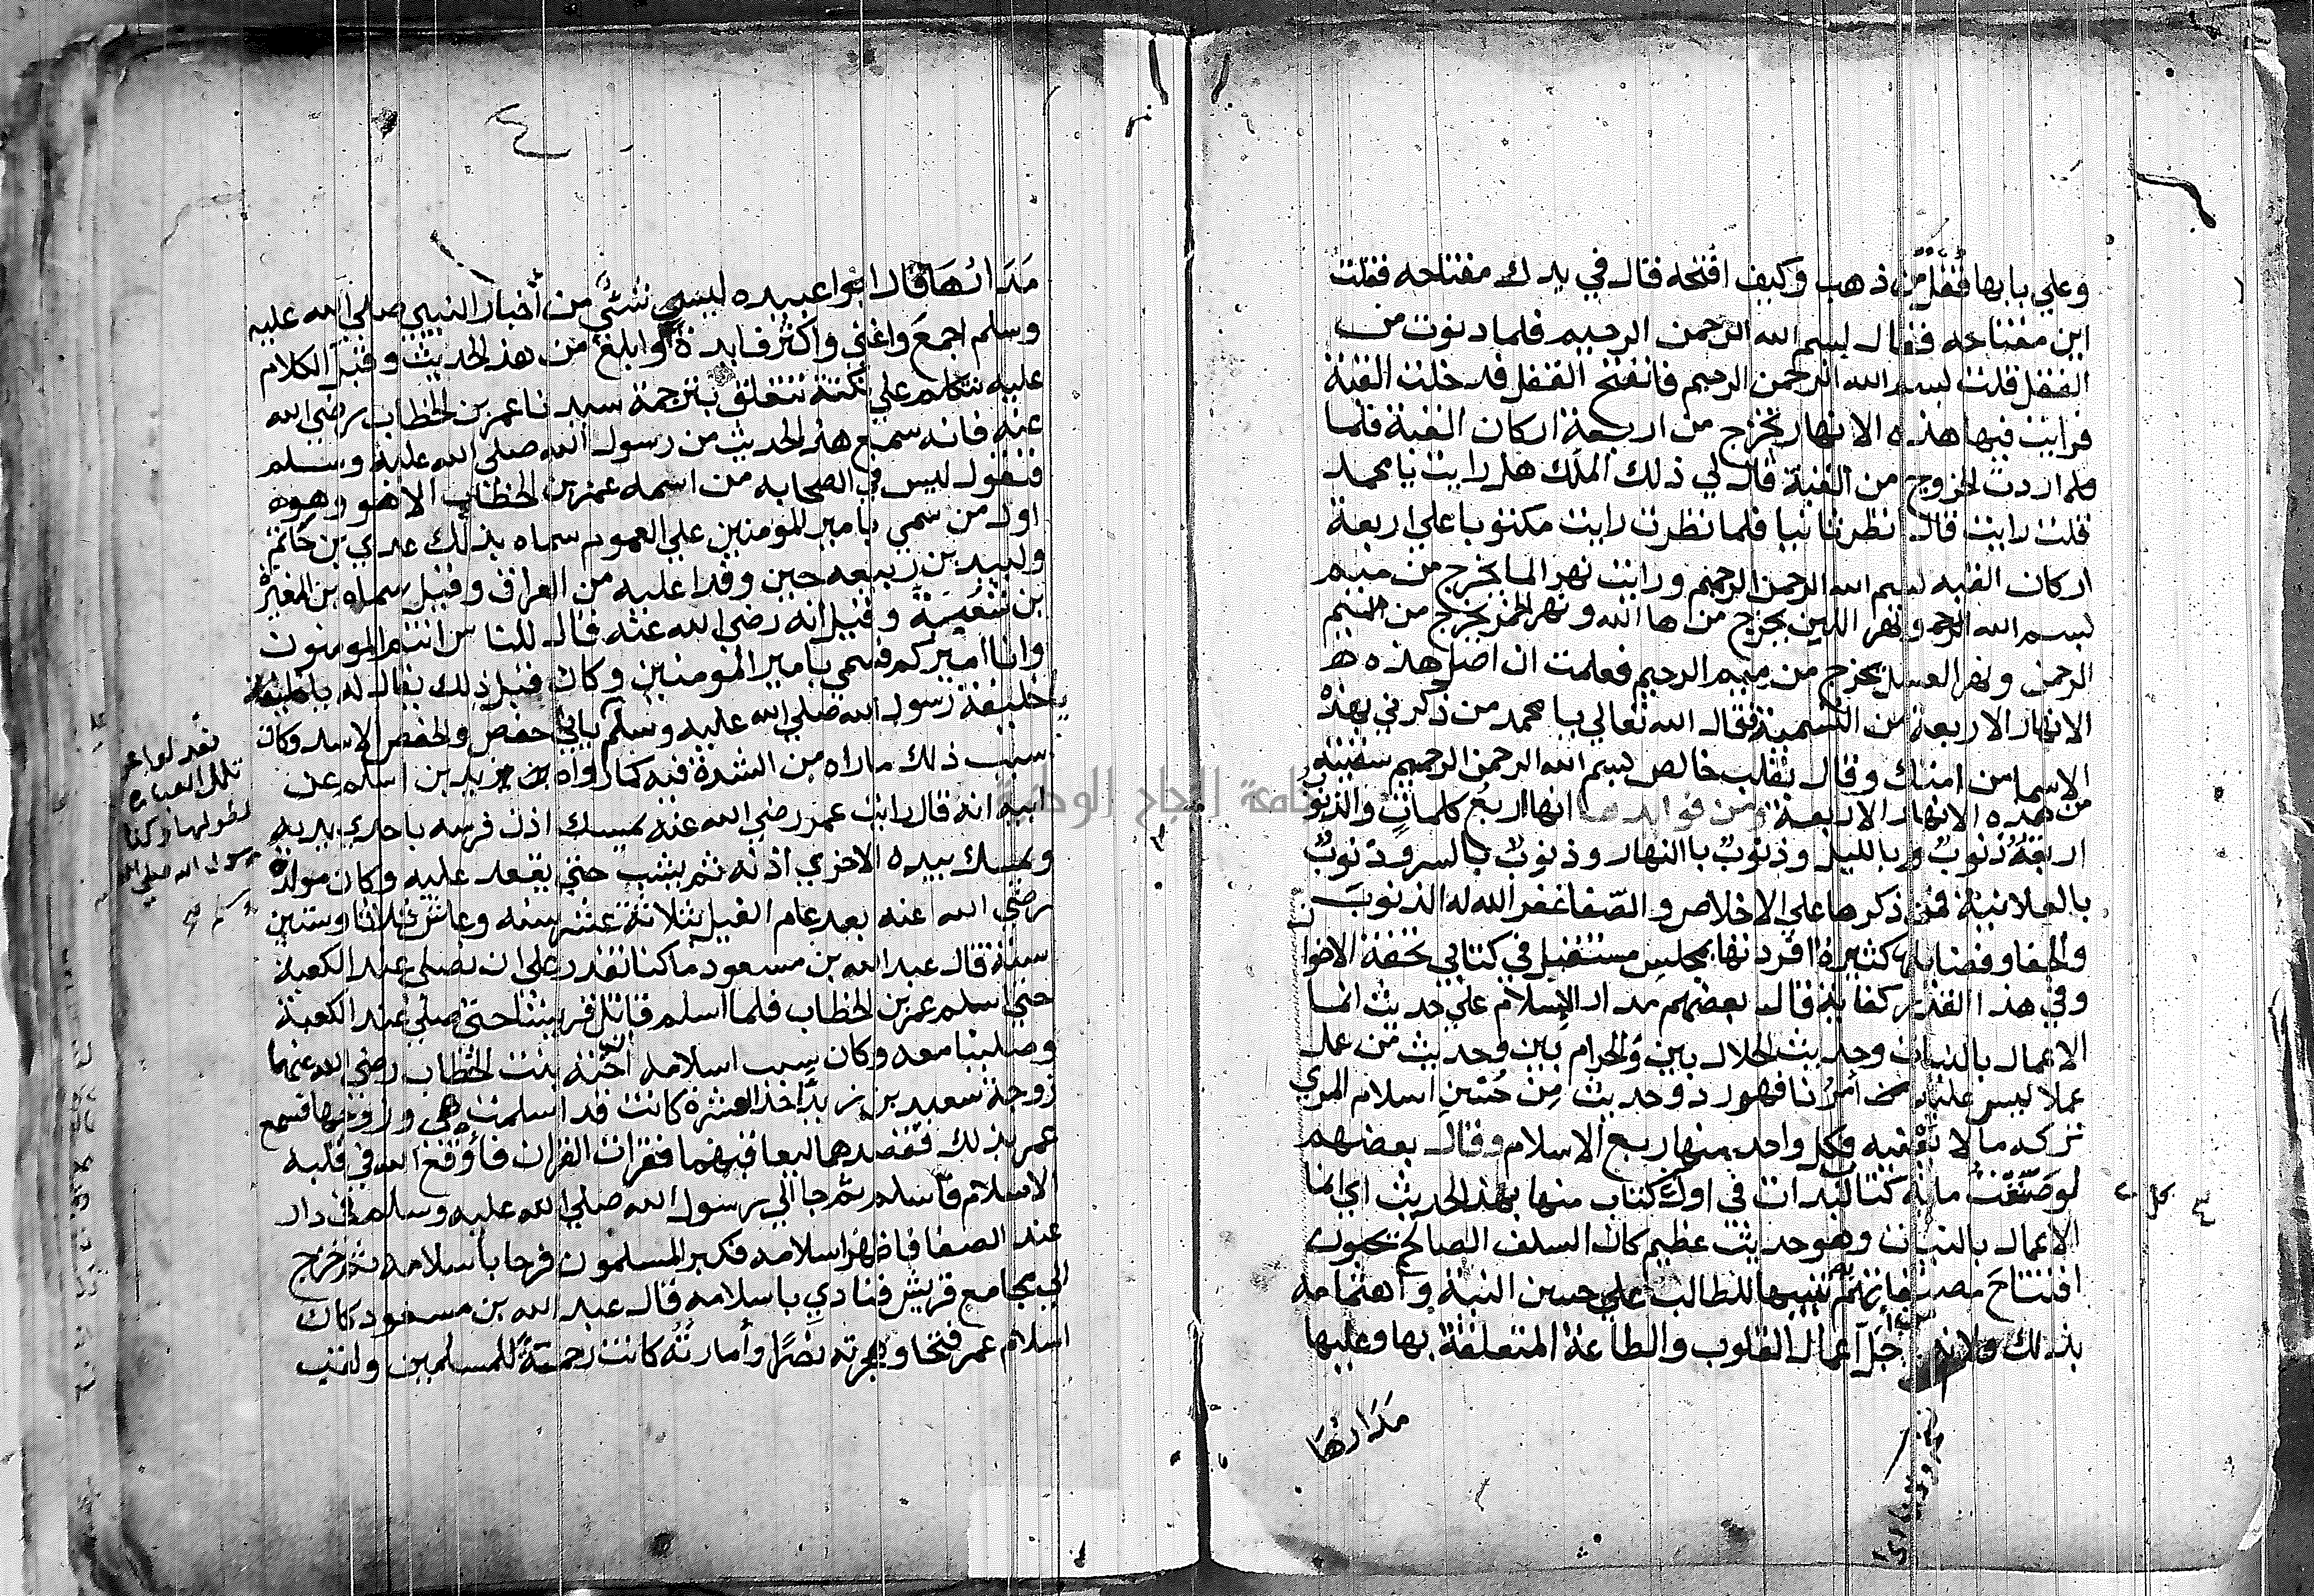 وعلي بابها قُفْلٌ مِّن ذهب وكيف افتحه قال في يدك مفتاحه فقلت
اين مفتاحه فقال بسم الله الرحمن الرحيم فلما دنوت من
القفل قلت بسم الله الرحمن الرحيم فانفتح القفل فدخلت القبة
فرايت فيها هذه الانهار تخرج من اربعة اركان القبة فلما
فلما اردت الخروج من القبة قال لي ذلك الملك هل رايت يا محمد
قلت رايت قال انظر ثانيا فلما نظرت رايت مكتوبا علي اربعة
اركان القبه بسم الله الرحمن الرحيم ورايت نهر الما يخرج من ميم
بسم الله ونهر اللبن يخرج من ها الله ونهر الخمر يخرج من الميم
الرحمن ونهر العسل يخرج من ميم الرحيم فعلمت ان اصل هذه
الانهار الاربعة من التسمية فقال الله تعالي يا محمد من ذكرني بهذه
الاسما من امتك وقال بقلب خالص بسم الله الرحمن الرحيم سقيته
من هذه الانهار الاربعة ومن فوايدها انها اربع كلمات والذنوب
اربعة ذنوب بالليل وذنوب باالنهار وذنوب بالسر وذنوب
بالعلانية فمن ذكرها علي الاخلاص والصفا غفر الله له الذنوب
والجفا وفضايلها كثيرة افردتها بمجلس مستقل في كتابي تحفة الاخوان
وفي هذا القدر كفاية قال بعضهم مدار الاسلام علي حديث انما
الاعمال بالنيات وحديث الحلال بين والحرام بين وحديث من عمل
عملا ليس عليه امرنا فهو رد وحديث من حسن اسلام المرء
تركه ما لا يعنيه فكل واحد منها ربع الاسلام وقال بعضهم
لو صنفت ماية كتاب لبدات في اول كتاب منها بهذا الحديث اي انما
الاعمال بالنيات وهو حديث عظيم كان السلف الصالح يحبون
افتتاح مصنفاتهم تنبيها للطالب علي حسن النية واهتمامه
بذلك ولانه اجل اعمال القلوب والطاعة المتعلقة بها وعليها
مَدَارُهَا
مَدَارُهَا قال ابوا عبيده ليس شئ من اخبار النبي صلي الله عليه
وسلم اجمع واغني واكثر فايدة وابلغ من هذا الحديث وقبل الكلام
عليه نتكلم علي نكتة تتعلق بترجمة سيدنا عمر بن الخطاب رضي الله
عنه فانه سمع هذا الحديث من رسول الله صلي الله عليه وسلم
فنقول ليس في الصحابه من اسمه عمر بن الخطاب الا هو وهو
اول من سمي بامير المومنين علي العموم سماه بذلك عدي بن حاتم
ولبيد بن ربيعه حين وفدا عليه من العراق وقيل سماه بن المغيرة
بن شعبة وقيل انه رضي الله عنه قال للناس انتم المومنون
وانا اميركم فسمي بامير المومنين وكان قبل ذلك يقال له يا خليفة
خليفة رسول الله صلي الله عليه وسلم بابي حفص والحفص الاسد وكان
سبب ذلك ماراه من الشدة فيه كما رواه زيد بن اسلم عن
ابيه انه قال رايت عمر رضي الله عنه يمسك اذن فرسه باحدي يديه
ويمسك بيده الاخري اذنه ثم يثب حتي يقعد عليه وكان مولده
رضي الله عنه بعد عام الفيل بثلاثة عشر سنه وعاش ثلاثا وستين
سنة قال عبد الله بن مسعود ما كنا نقدر علي ان نصلي عند الكعبة
حتي اسلم عمر بن الخطاب فلما اسلم قاتل قريشا حتى صلي عند الكعبة
وصلينا معه وكان سبب اسلامه اخته بنت الخطاب رضي الله عنهما
زوجة سعيد بن زيد احد العشرة كانت قد اسلمت هي وزوجها فسمع
عمر بذلك فقصدهما ليعاقبهما فقرات القران فاوقع الله في قلبه
الاسلام فاسلم ثم جا الي رسول الله صلي الله عليه وسلم في دار
عند الصفا فاظهر اسلامه فكبر المسلمون فرحا باسلامه ثم خرج
الي مجامع قريش فنادي باسلامه قال عبد الله بن مسعود كان
اسلام عمر فتحا وهجرته نصرا وامارته كانت رحمة للمسلمين ولقب
تلك العبارة
لطولها وكنا
رسول الله صلي الله